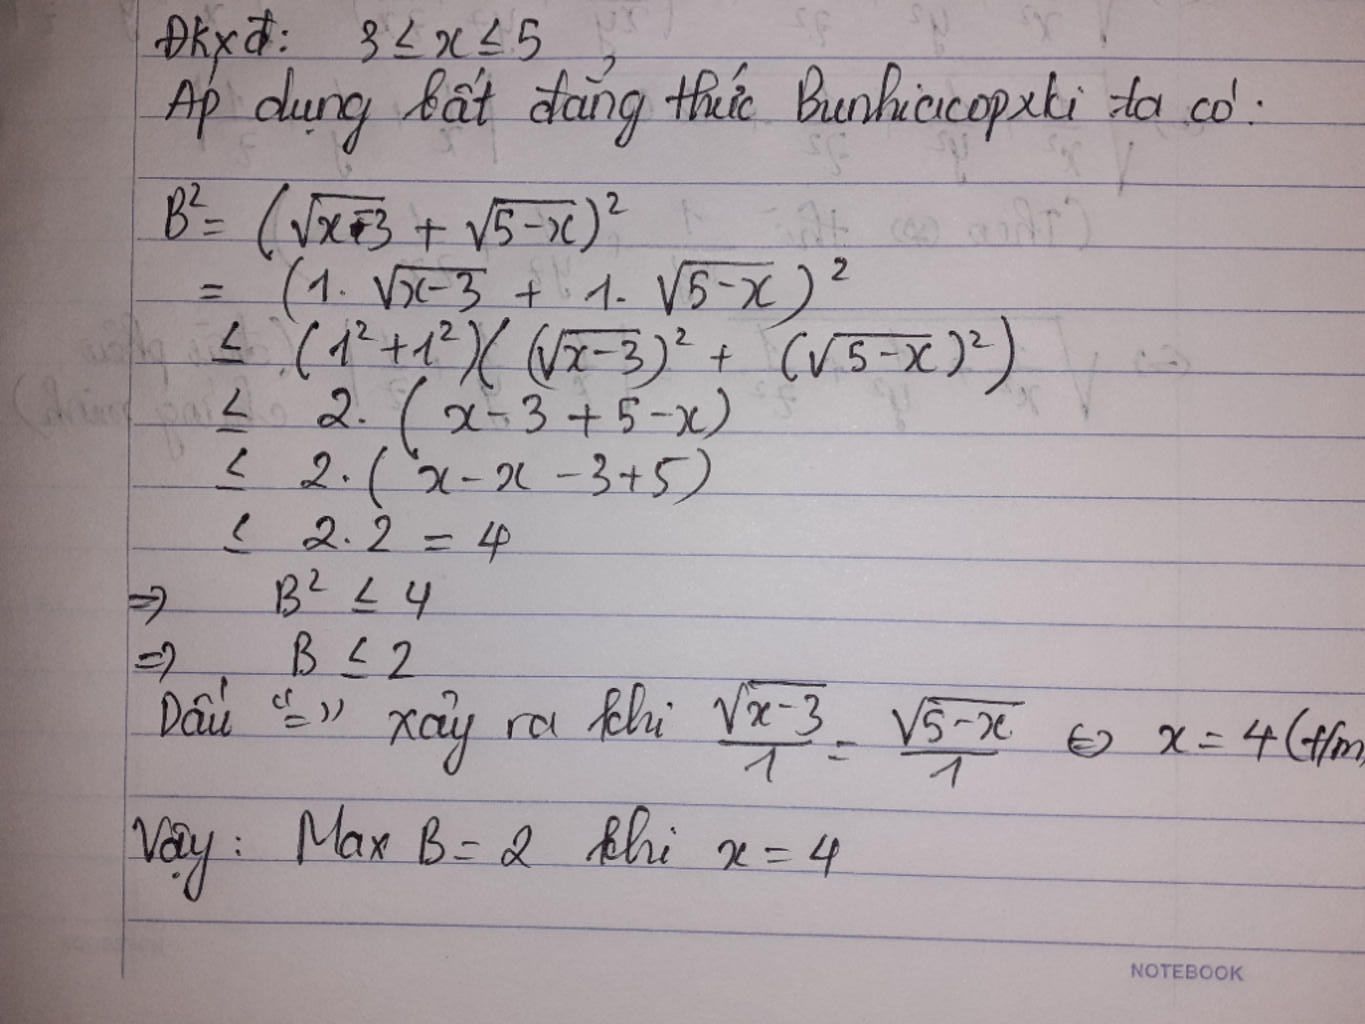 Đkxđ: 3 ≤ x ≤ 5
Áp dụng bất đẳng thức Bunhiacopxki ta có:
B² = (√(x-3) + √(5-x))²
= (1. √(x-3) + 1. √(5-x))²
≤ (1² + 1²)((√(x-3))² + (√(5-x))²)
≤ 2. (x - 3 + 5 - x)
≤ 2. (x - x - 3 + 5)
≤ 2. 2 = 4
⇒ B² ≤ 4
⇒ B ≤ 2
Dấu "=" xảy ra khi √(x-3)/1 = √(5-x)/1 ⇔ x = 4 (t/m)
Vậy: Max B = 2 khi x = 4
NOTEBOOK